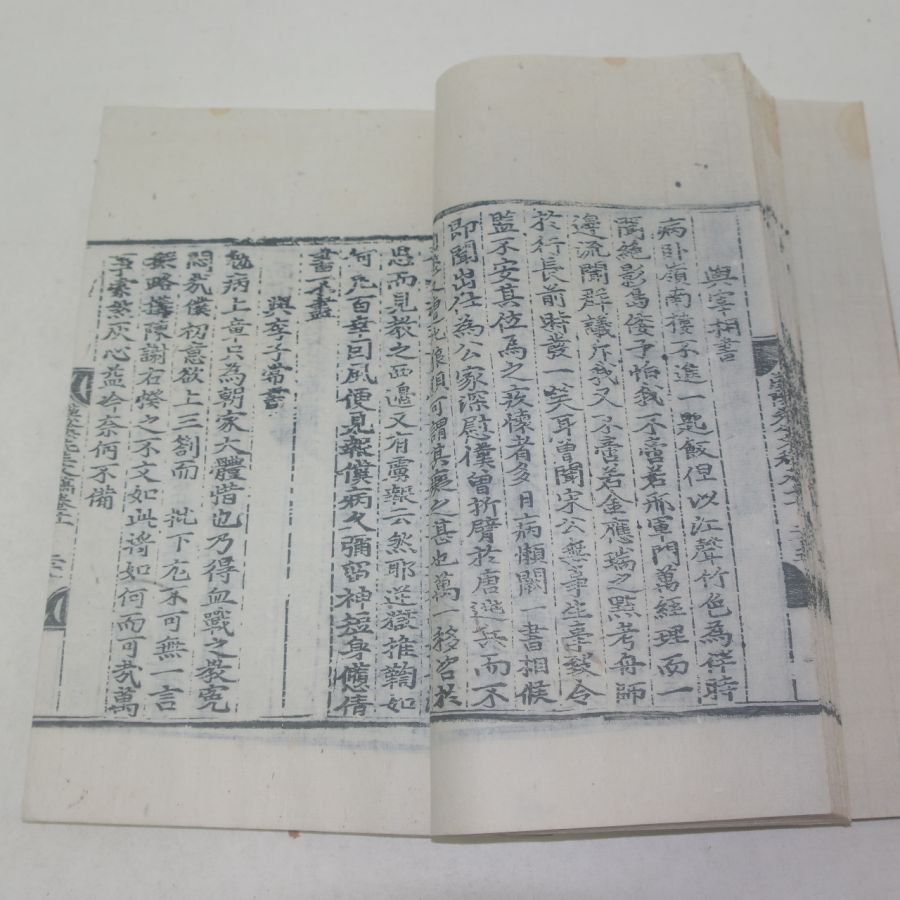 與宰相書
病卧嶺南擁不進一匙飯但以江聲竹色為伴時
聞絕影島倭子怕我不啻若帝軍門萬經理而一
邊流聞群議斥我又不啻若金應瑞之點考舟師
於行長前時發一笑耳曾聞宋公無事坐臺發令
監不安其位為之疚懷者多日病懶闕一書相候
即聞出仕為公家深慰僕曾折臂於唐遊兵而不
可謂其衰之甚也萬一移咨於
思而見教之西邊又有虜釁云然耶送撥推鞫如
何凡百幸回風便見報僕病久彌留神短身憊倩
書不盡
與李子常書
病上章只為朝家大體惜也乃得血戰之教寃
悶哉僕初意欲上三劄而 批下尤不可無一言
槩略搆陳謝右候之不文如此將如何而可哉萬
事索然灰心益冷奈何不備